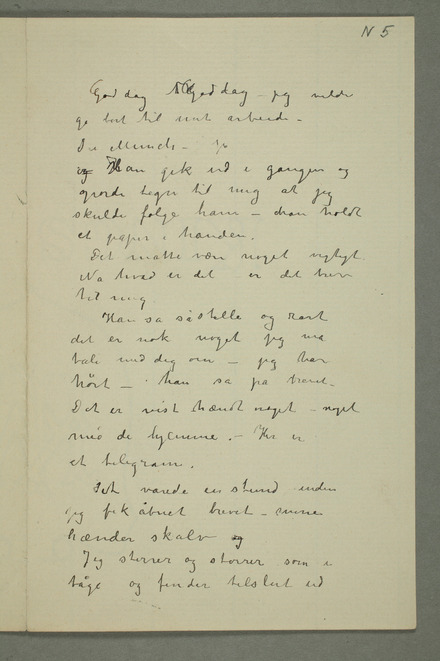 N 5
God dag God dag – jeg vilde
gå bort til mit arbeide –
De Munch –
og Han gik ud i gangen og
gjorde tegn til mig at jeg
skulde følge ham – han holdt
et papir i hånden.
Det måtte være noget vigtigt
Na hvad er det – er det brev
til mig
Han sa så stille og rart
det er nok noget jeg må
tale med dig om – jeg har
hørt – han så på brevet –
Det er vist hændt noget – noget
med de hjemme. – Her er
et telegram.
Det varede en stund inden
jeg fik åbnet brevet – mine
hænder skalv og
Jeg stirrer og stirrer som i
tåge og finder tilslut ud